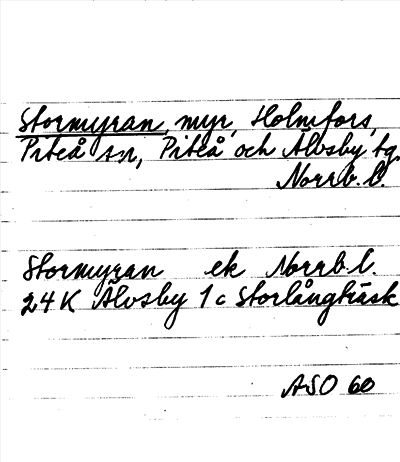 Stormyran, myr, Holmfors,
Piteå sn, Piteå och Älvsby tg.
Norrb. l.
Stormyran ek Norrb. l.
24K Älvsby 1c Storlångträsk
ASO 60